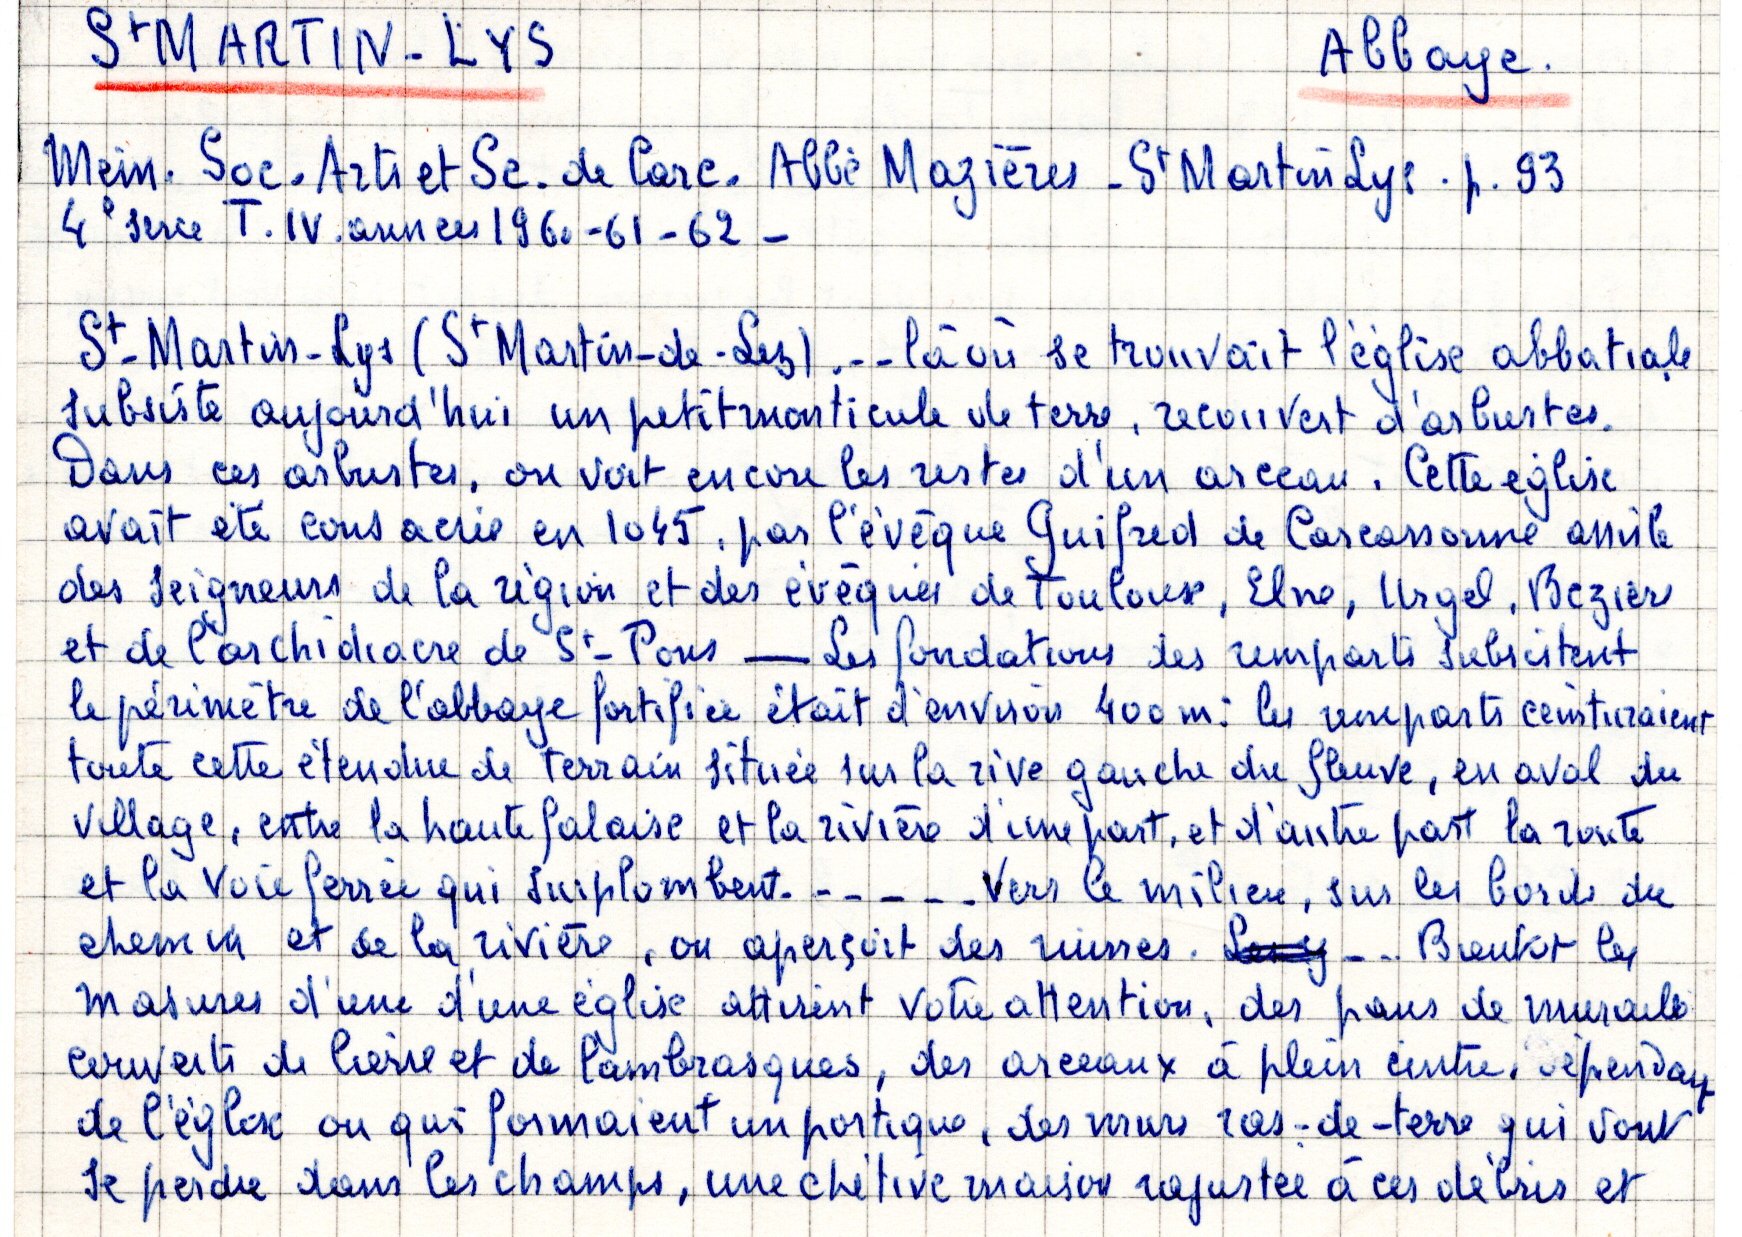 St MARTIN-LYS Abbaye.
Mém. Soc. Arts et Sc. de Carc. Abbé Mazières - St Martin Lys. p. 93
4e série T. IV. années 1960-61-62 -
St-Martin-Lys (St Martin-de-Lez) ... là où se trouvait l'église abbatiale
subsiste aujourd'hui un petit monticule de terre, recouvert d'arbustes.
Dans ces arbustes, on voit encore les restes d'un arceau. Cette église
avait été consacrée en 1045, par l'évêque Guifred de Carcassonne assisté
des seigneurs de la région et des évêques de Toulouse, Elne, Urgel, Bezier
et de l'archidiacre de St-Pons — Les fondations des remparts subsistent
le périmètre de l'abbaye fortifiée était d'environ 400 m: les remparts ceinturaient
toute cette étendue de terrain située sur la rive gauche du fleuve, en aval du
village, entre la haute falaise et la rivière d'une part, et d'autre part la route
et la voie ferrée qui surplombent. - - - - - Vers le milieu, sur les bords du
chemin et de la rivière, on aperçoit des ruines. - .. Bientôt les
masures d'une d'une église attirent votre attention, des pans de muraille
couverts de lierre et de lambrasques, des arceaux à plein cintre, dépendant
de l'église ou qui formaient un portique, des murs ras-de-terre qui vont
se perdre dans les champs, une chétive maison rajustée à ces débris et